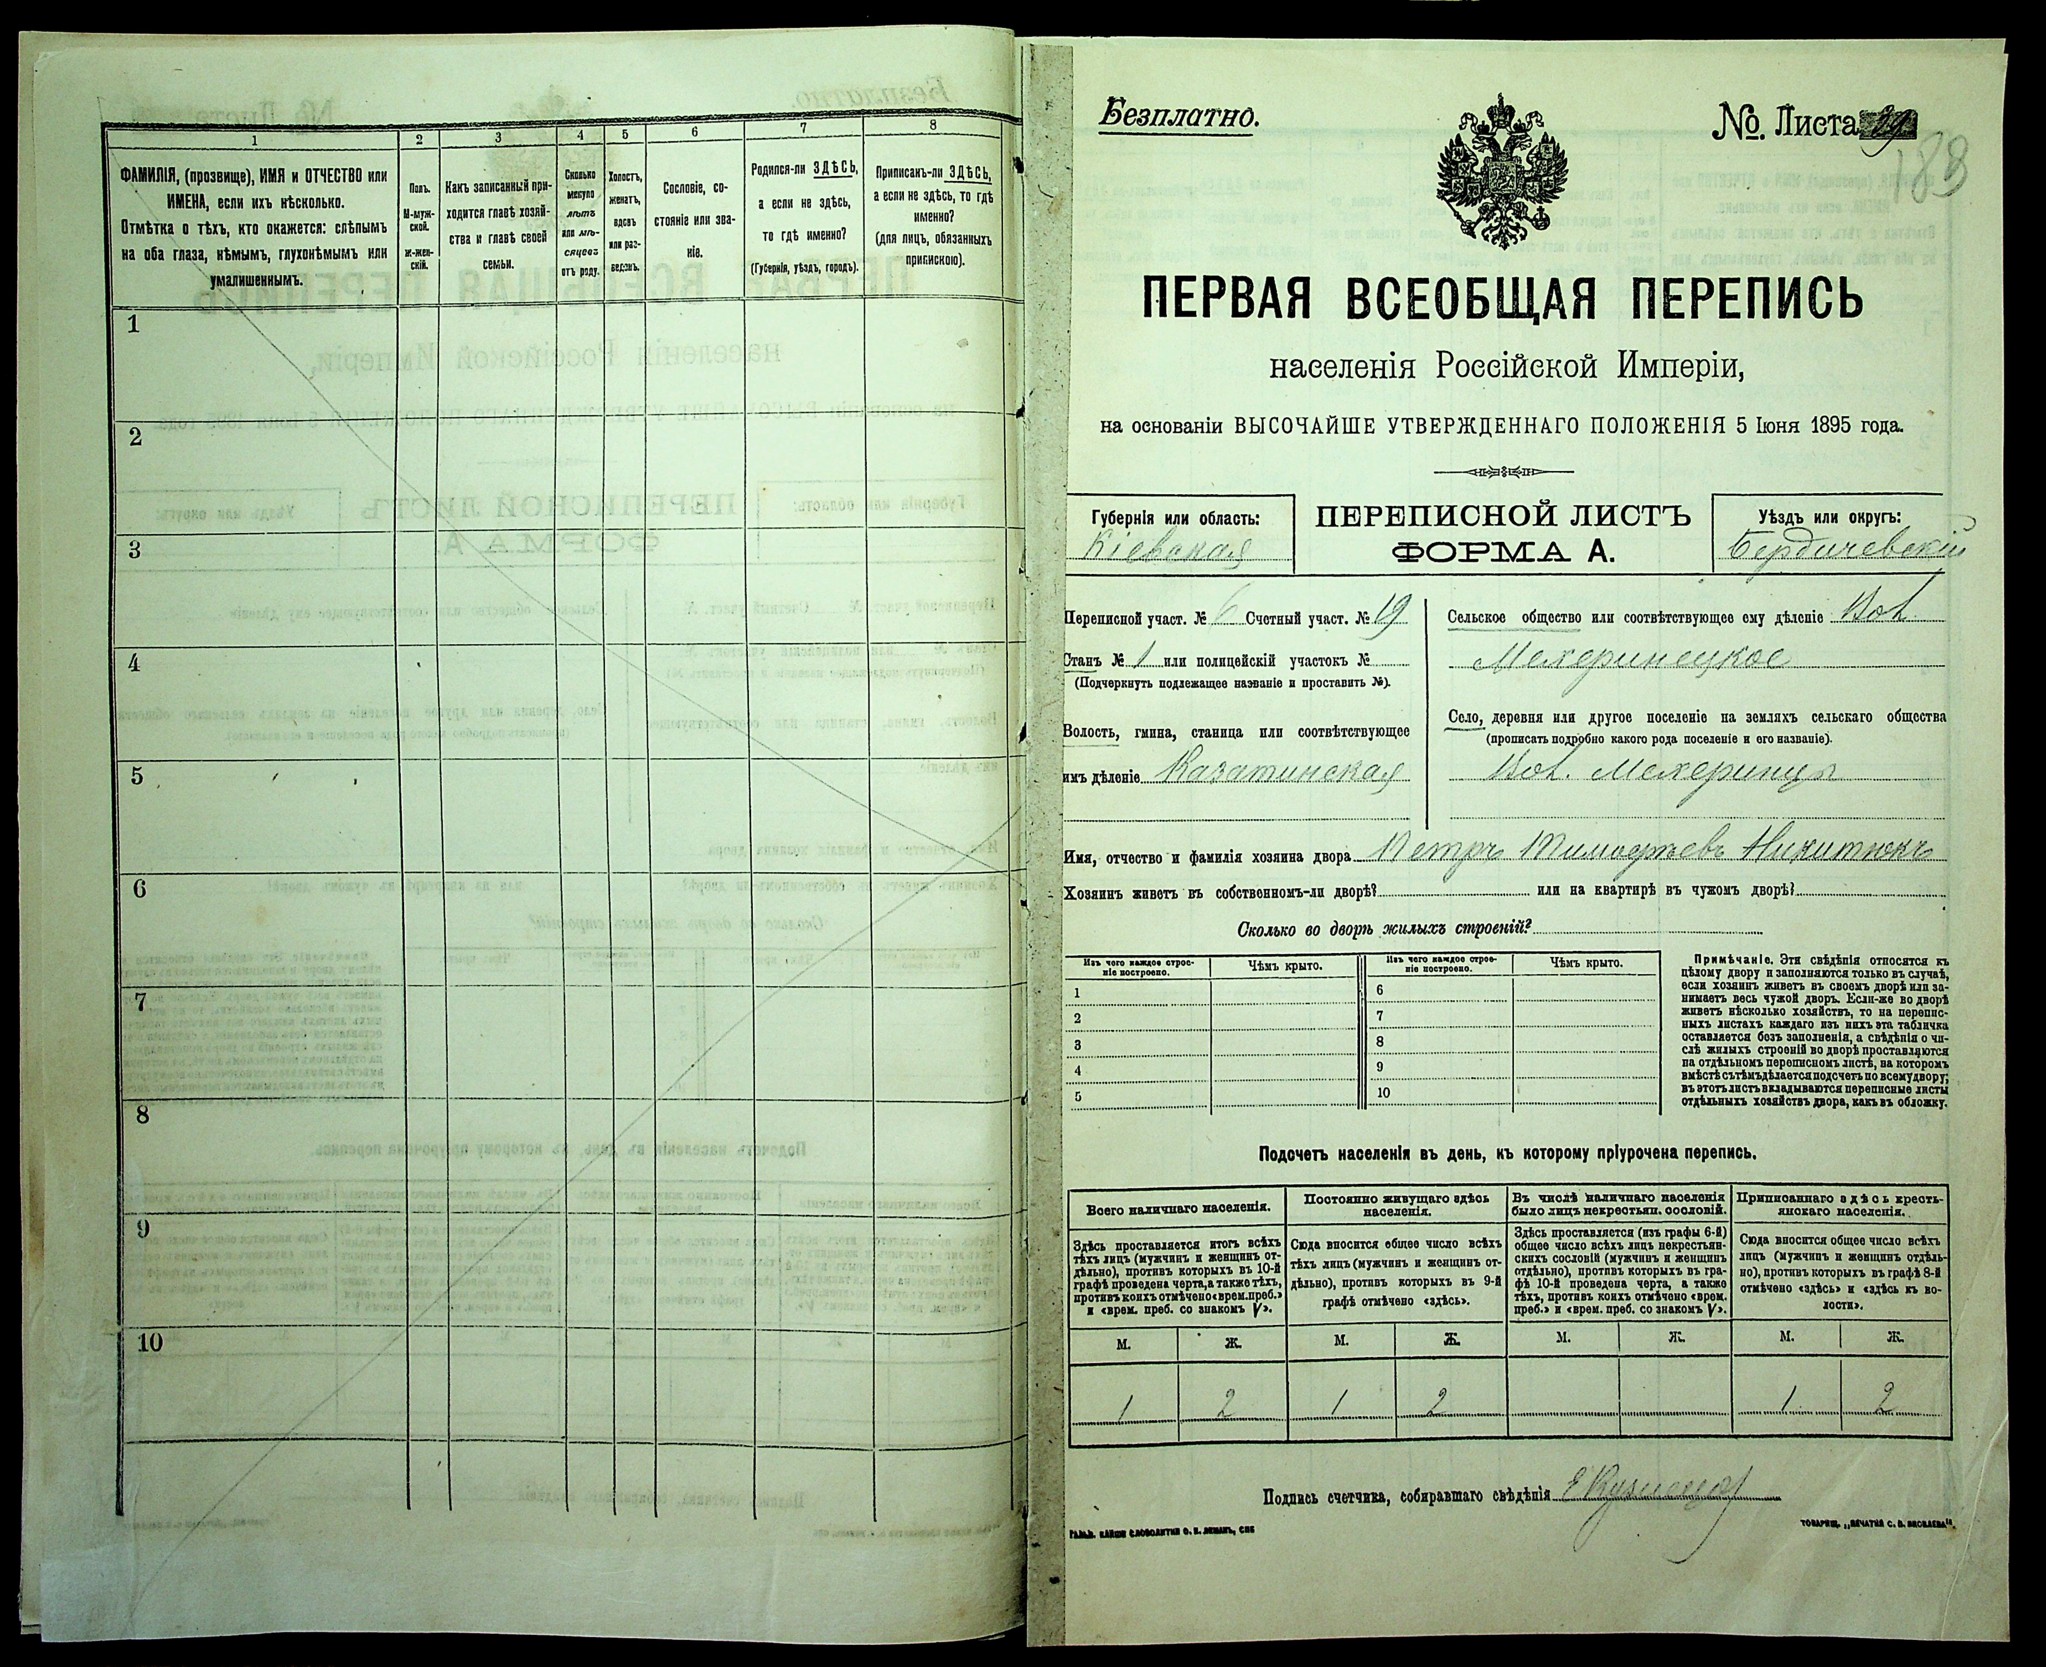 1
2
3
4
5
6
7
8
ФАМИЛІЯ, (прозвище), ИМЯ и ОТЧЕСТВО или
ИМЕНА, если ихъ нѣсколько.
Отмѣтка о тѣхъ, кто окажется: слѣпымъ
на оба глаза, нѣмымъ, глухонѣмымъ или
умалишеннымъ.
Полъ.
М-муж-
ской.
ж-жен-
скій.
Какъ записанный при-
ходится главѣ хозяй-
ства и главѣ своей
семьи.
Сколько
минуло
лѣтъ
или мѣ-
сяцевъ
отъ роду.
Холостъ,
женатъ,
вдовъ
или раз-
веденъ.
Сословіе, со-
стояніе или зва-
ніе.
Родился-ли ЗДѢСЬ,
а если не здѣсь,
то гдѣ именно?
(Губернія, уѣздъ, городъ).
Приписанъ-ли ЗДѢСЬ,
а если не здѣсь, то гдѣ
именно?
(для лицъ, обязанныхъ
припискою).
1
2
3
4
5
6
7
8
9
10
Безплатно.
№. Листа
183
ПЕРВАЯ ВСЕОБЩАЯ ПЕРЕПИСЬ
населенія Россійской Имперіи,
на основаніи ВЫСОЧАЙШЕ УТВЕРЖДЕННАГО ПОЛОЖЕНІЯ 5 Іюня 1895 года.
Губернія или область:
Кіевская
ПЕРЕПИСНОЙ ЛИСТЪ
ФОРМА А.
Уѣздъ или округъ:
Бердичевскій
Переписной участ. № 6 Счетный участ. № 19
Станъ № 1 или полицейскій участокъ №
(Подчеркнуть подлежащее названіе и проставить №).
Волость, гмина, станица или соотвѣтствующее
имъ дѣленіе Казатинская
Сельское общество или соотвѣтствующее ему дѣленіе Вол.
Мехеринецкое
Село, деревня или другое поселеніе на земляхъ сельскаго общества
(прописать подробно какого рода поселеніе и его названіе).
Вол. Мехеринцы
Имя, отчество и фамилія хозяина двора Петръ Тимофѣевъ Никитюкъ
Хозяинъ живетъ въ собственномъ-ли дворѣ? или на квартирѣ въ чужомъ дворѣ?
Сколько во дворѣ жилыхъ строеній?
Изъ чего каждое строе-
ніе построено.
Чѣмъ крыто.
Изъ чего каждое строе-
ніе построено.
Чѣмъ крыто.
1
2
3
4
5
6
7
8
9
10
Примѣчаніе. Эти свѣдѣнія относятся къ
цѣлому двору и заполняются только въ случаѣ,
если хозяинъ живетъ въ своемъ дворѣ или за-
нимаетъ весь чужой дворъ. Если-же во дворѣ
живетъ нѣсколько хозяйствъ, то на перепис-
ныхъ листахъ каждаго изъ нихъ эта табличка
оставляется безъ заполненія, а свѣдѣнія о чи-
слѣ жилыхъ строеній во дворѣ проставляются
на отдѣльномъ переписномъ листѣ, на которомъ
вмѣстѣ съ тѣмъ дѣлается подсчетъ по всему двору;
въ этотъ листъ вкладываются переписные листы
отдѣльныхъ хозяйствъ двора, какъ въ обложку.
Подсчетъ населенія въ день, къ которому пріурочена перепись.
Всего наличнаго населенія.
Постоянно живущаго здѣсь
населенія.
Въ числѣ наличнаго населенія
было лицъ некрестьян. сословій.
Приписаннаго здѣсь кресть-
янскаго населенія.
Здѣсь проставляется итогъ всѣхъ
тѣхъ лицъ (мужчинъ и женщинъ от-
дѣльно), противъ которыхъ въ 10-й
графѣ проведена черта, а также тѣхъ,
противъ коихъ отмѣчено «врем. преб.»
и «врем. преб. со знакомъ V».
Сюда вносится общее число всѣхъ
тѣхъ лицъ (мужчинъ и женщинъ от-
дѣльно), противъ которыхъ въ 9-й
графѣ отмѣчено «здѣсь».
Здѣсь проставляется (изъ графы 6-й)
общее число всѣхъ лицъ некрестьян-
скихъ сословій (мужчинъ и женщинъ
отдѣльно), противъ которыхъ въ гра-
фѣ 10-й проведена черта, а также
тѣхъ, противъ коихъ отмѣчено «врем.
преб.» и «врем. преб. со знакомъ V».
Сюда вносится общее число всѣхъ
лицъ (мужчинъ и женщинъ отдѣль-
но), противъ которыхъ въ графѣ 8-й
отмѣчено «здѣсь» и «здѣсь къ во-
лости».
М. Ж. М. Ж. М. Ж. М. Ж.
1 2 1 2 1 2
Подпись счетчика, собиравшаго свѣдѣнія Е Кузнецов
ТОВАРИЩ. „ПЕЧАТНЯ С. П. ЯКОВЛЕВА".